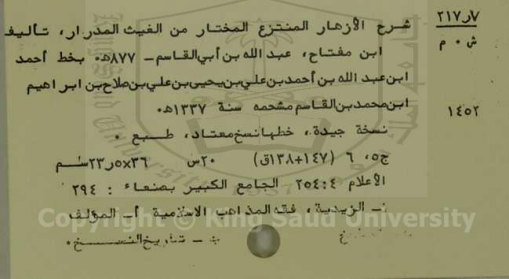 ٢١٧٫٧
ش ٠ م
شرح الأزهار المنتزع المختار من الغيث المدرار، تأليف
ابن مفتاح، عبد الله بن أبي القاسم – ٨٧٧هـ٠ بخط أحمد
ابن عبد الله بن أحمد بن علي بن يحيى بن علي بن صلاح بن ابراهيم
ابن محمد بن القاسم سنة ١٣٣٧هـ٠
١٤٥٢
نسخة جيدة، خطها نسخ معتاد، طبع ٠
ج٥، ٦ (١٤٧+١٣٨ق) ٢٠س ٣٦x٢٣٫٥سم
الأعلام ٢٥٤:٤ الجامع الكبير بصنعاء : ٢٩٤
الزيدية، فقه المذاهب الاسلامية أ– المؤلف
ب – تاريخ النسخ ٠
Copyright © King Saud University